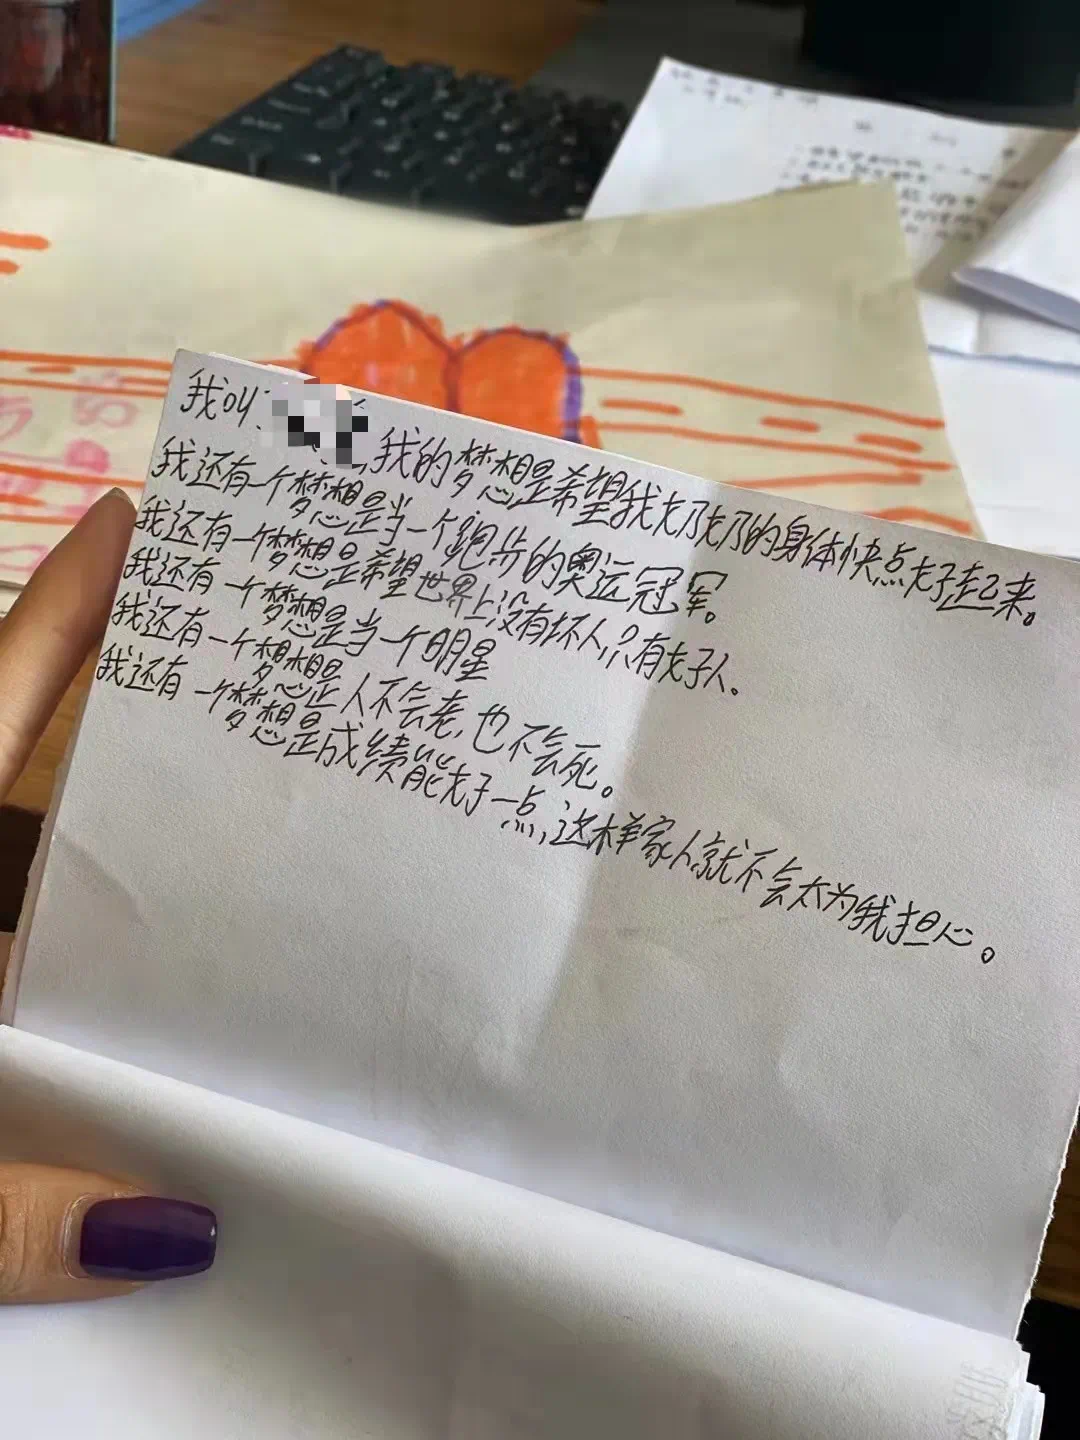 我叫
,我的梦想是希望我奶奶的身体快点好起来。
我还有一个梦想是当一个跑步的奥运冠军。
我还有一个梦想是希望世界上没有坏人,只有好人。
我还有一个梦想是当一个明星
我还有一个梦想是人不会老,也不会死。
我还有一个梦想是成绩能好一点,这样家人就不会太为我担心。